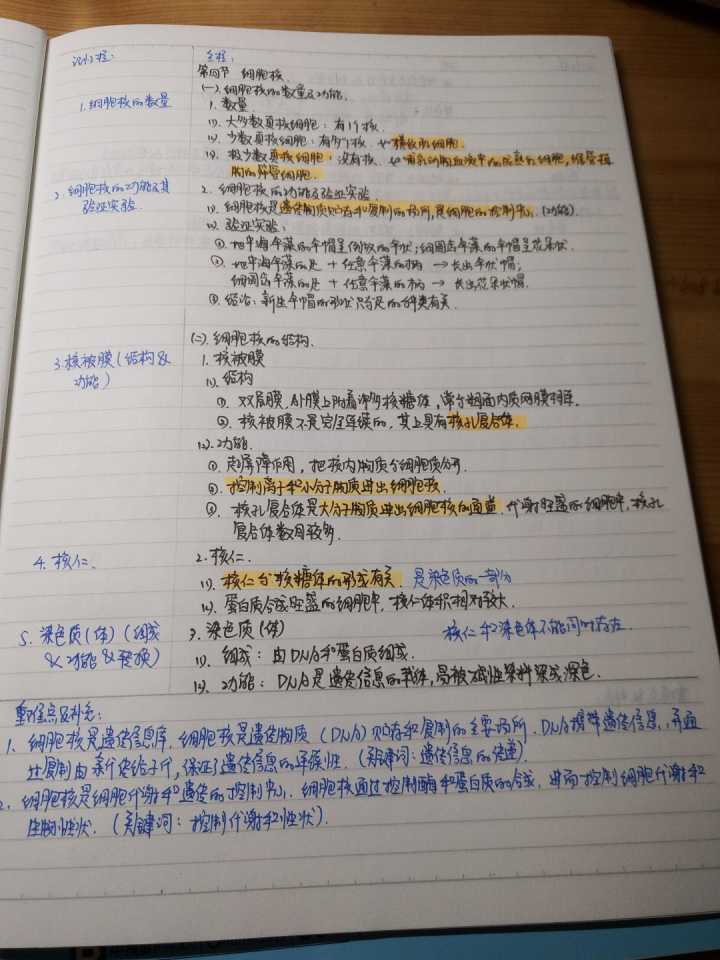 课程:
全程:
第四节 细胞核.
(一).细胞核的数量及功能.
1.细胞核的数量
1.数量
(1).大多数真核细胞:有1个核.
(2).少数真核细胞:有多个核.如横纹肌细胞.
(3).极少数真核细胞:没有核.如哺乳动物血液中的成熟红细胞,维管植
物的筛管细胞.
2.细胞核的功能及其
验证实验.
2.细胞核的功能及验证实验.
(1).细胞核是遗传物质贮存和复制的场所,是细胞的控制中心.(功能).
(2).验证实验:
①.地中海伞藻的伞帽呈倒放的伞状;细圆齿伞藻的伞帽呈花朵状.
②.地中海伞藻的足 + 任意伞藻的柄 → 长出伞状帽;
细圆齿伞藻的足 + 任意伞藻的柄 → 长出花朵状帽.
③.结论:新生伞帽的形状只与足的种类有关.
(二).细胞核的结构.
3.核被膜(结构&
功能)
1.核被膜
(1).结构
①.双层膜.外膜上附着许多核糖体,常与粗面内质网膜相连.
②.核被膜不是完全连续的,其上具有核孔复合体.
(2).功能.
①.起屏障作用,把核内物质与细胞质分开.
②.控制离子和小分子物质进出细胞核.
③.核孔复合体是大分子物质进出细胞核的通道.代谢旺盛的细胞中,核孔
复合体数目较多.
4.核仁.
2.核仁.
(1).核仁与核糖体的形成有关.是染色质的一部分
(2).蛋白质合成旺盛的细胞中,核仁体积相对较大.
5.染色质(体)(组成
&功能&转换)
3.染色质(体)
核仁和染色体不能同时存在.
(1).组成:由DNA和蛋白质组成.
(2).功能:DNA是遗传信息的载体,易被碱性染料染成深色.
重难点及补充:
1.细胞核是遗传信息库.细胞核是遗传物质(DNA)贮存和复制的主要场所.DNA携带遗传信息,并通
过复制由亲代传给子代,保证了遗传信息的连续性.(关键词:遗传信息的传递)
2.细胞核是细胞代谢和遗传的控制中心.细胞核通过控制酶和蛋白质的合成,进而控制细胞代谢和
生物性状.(关键词:控制代谢和性状).